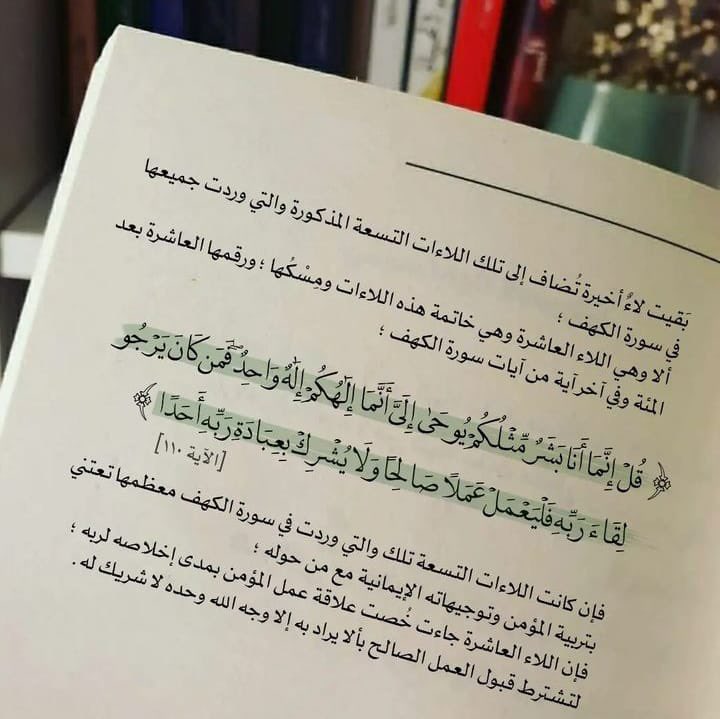 بَقيت لاءٌ أخيرة تُضاف إلى تلك اللاءات التسعة المذكورة والتي وردت جميعها
في سورة الكهف ؛
ألا وهي اللاء العاشرة وهي خاتمة هذه اللاءات ومِسْكُها ؛ ورقمها العاشرة بعد
المئة وفي آخر آية من آيات سورة الكهف ؛
﴿ قُلْ إِنَّمَا أَنَا بَشَرٌ مِّثْلُكُمْ يُوحَىٰ إِلَيَّ أَنَّمَا إِلَٰهُكُمْ إِلَٰهٌ وَاحِدٌ ۖ فَمَن كَانَ يَرْجُو
لِقَاءَ رَبِّهِ فَلْيَعْمَلْ عَمَلًا صَالِحًا وَلَا يُشْرِكْ بِعِبَادَةِ رَبِّهِ أَحَدًا ﴾
[الآية ١١٠]
فإن كانت اللاءات التسعة تلك والتي وردت في سورة الكهف معظمها تعتني
بتربية المؤمن وتوجيهاته الإيمانية مع من حوله ؛
فإن اللاء العاشرة جاءت خُصت علاقة عمل المؤمن بمدى إخلاصه لربه ؛
لتشترط قبول العمل الصالح بألا يراد به إلا وجه الله وحده لا شريك له .